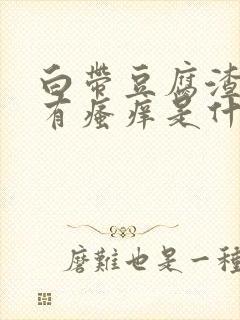 白带豆腐渣
有瘙痒是什
磨難也是一種